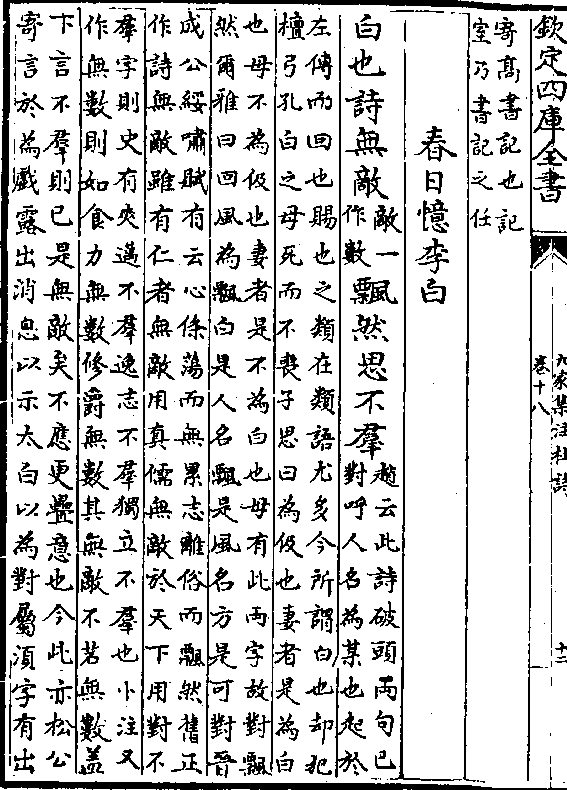 欽定四庫全書
九家集注杜詩
卷十八
十二
寄髙書記也記
室乃書記之任
春日憶李白
白也詩無敵敵一作數飄然思不羣趙云此詩破頭兩句已對呼人名為某也起於
左傳而回也賜也之類在類語尤多今所謂白也却犯
檀弓孔白之母死而不喪子思曰為伋也妻者是為白
也母不為伋也妻者是不為白也母有此兩字故對飄
然爾雅曰回風為飄白是人名飄是風名方是可對晉
成公綏嘯賦有云心滌蕩而無累志離俗而飄然舊正
作詩無敵雖有仁者無敵用真儒無敵於天下用對不
羣字則史有爽邁不羣逸志不羣獨立不羣也小注又
作無數則如食力無數修爵無數其無敵不若無數盖
下言不羣則已是無敵矣不應更疊意也今此亦松公
寄言於為戲露出消息以示太白以為對屬湏字有出